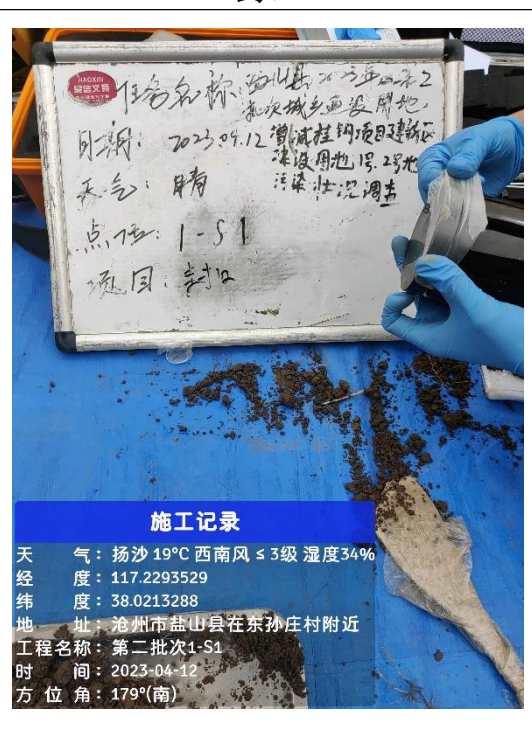 HAOXIN
昊信文具
任务名称：盐山县2023年度第2
批次城乡建设用地
日期：2023.04.12 增减挂钩项目建新区
建设用地1号、2号地
天气：晴
污染状况调查
点位：1-S1
项目：封口
施工记录
天 气：扬沙 19℃ 西南风 ≤ 3级 湿度34%
经 度：117.2293529
纬 度：38.0213288
地 址：沧州市盐山县在东孙庄村附近
工程名称：第二批次1-S1
时 间：2023-04-12
方 位 角：179°(南)